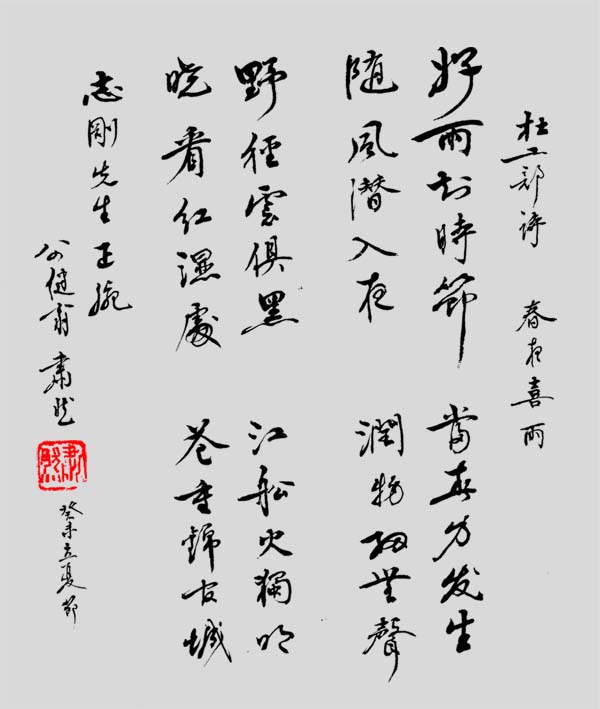 杜工部诗 春夜喜雨
好雨知時節 當春乃发生
随風潜入夜 潤物細無聲
野徑雲俱黑 江船火獨明
晓看红濕處 花重錦官城
志剛先生正腕
健翁 肅然
癸未立夏節